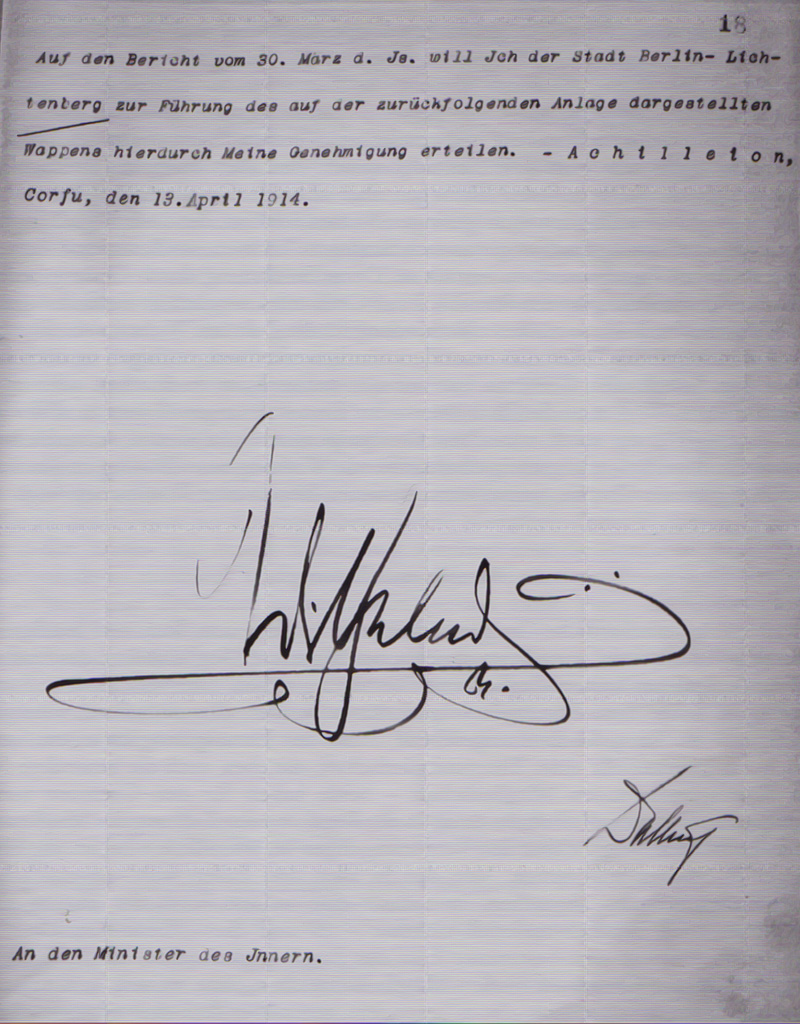 18
Auf den Bericht vom 30. März d. Js. will Jch der Stadt Berlin- Lich-
tenberg zur Führung des auf der zurückfolgenden Anlage dargestellten
Wappens hierdurch Meine Genehmigung erteilen. - A c h i l l e i o n,
Corfu, den 13.April 1914.
Wilhelm
An den Minister des Jnnern.